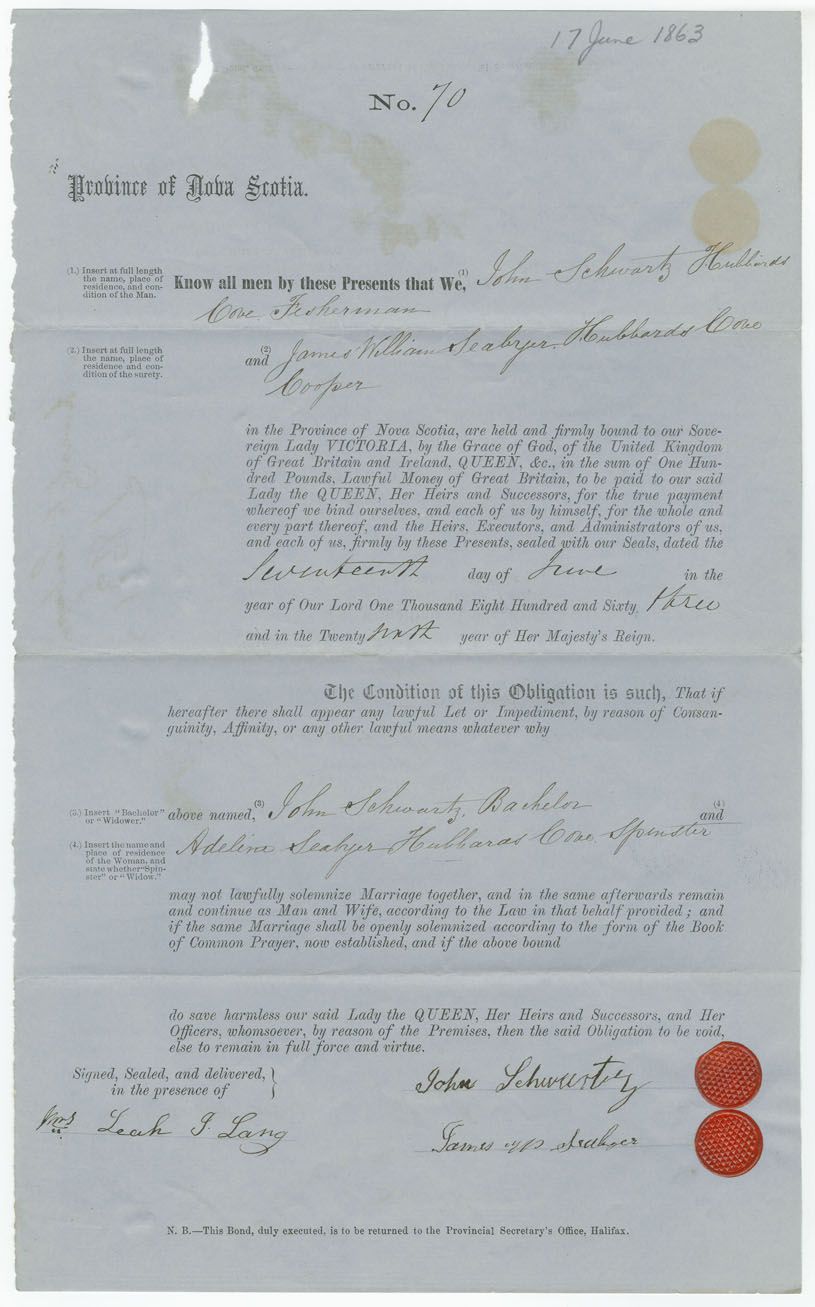 17 June 1863
No. 70
Province of Nova Scotia.
(1.) Insert at full length
the name, place of
residence, and con-
dition of the Man.
Know all men by these Presents that We, (1) John Schwartz Hubbards
Cove Fisherman
(2.) Insert at full length
the name, place of
residence and con-
dition of the surety.
and (2) James William Seabyer Hubbards Cove
Cooper
in the Province of Nova Scotia, are held and firmly bound to our Sove-
reign Lady VICTORIA, by the Grace of God, of the United Kingdom
of Great Britain and Ireland, QUEEN, &c., in the sum of One Hun-
dred Pounds, Lawful Money of Great Britain, to be paid to our said
Lady the QUEEN, Her Heirs and Successors, for the true payment
whereof we bind ourselves, and each of us by himself, for the whole and
every part thereof, and the Heirs, Executors, and Administrators of us,
and each of us, firmly by these Presents, sealed with our Seals, dated the
Seventeenth day of June in the
year of Our Lord One Thousand Eight Hundred and Sixty three
and in the Twenty sixth year of Her Majesty's Reign.
The Condition of this Obligation is such, That if
hereafter there shall appear any lawful Let or Impediment, by reason of Consan-
guinity, Affinity, or any other lawful means whatever why
(3.) Insert "Bachelor"
or "Widower."
above named, (3) John Schwartz, Bachelor (4) and
(4.) Insert the name and
place of residence
of the Woman, and
state whether "Spin-
ster" or "Widow."
Adelina Seabyer Hubbards Cove Spinster
may not lawfully solemnize Marriage together, and in the same afterwards remain
and continue as Man and Wife, according to the Law in that behalf provided; and
if the same Marriage shall be openly solemnized according to the form of the Book
of Common Prayer, now established, and if the above bound
do save harmless our said Lady the QUEEN, Her Heirs and Successors, and Her
Officers, whomsoever, by reason of the Premises, then the said Obligation to be void,
else to remain in full force and virtue.
Signed, Sealed, and delivered, }
in the presence of
John Schwartz
Mrs Leah J. Lang
James
N. B.—This Bond, duly executed, is to be returned to the Provincial Secretary's Office, Halifax.